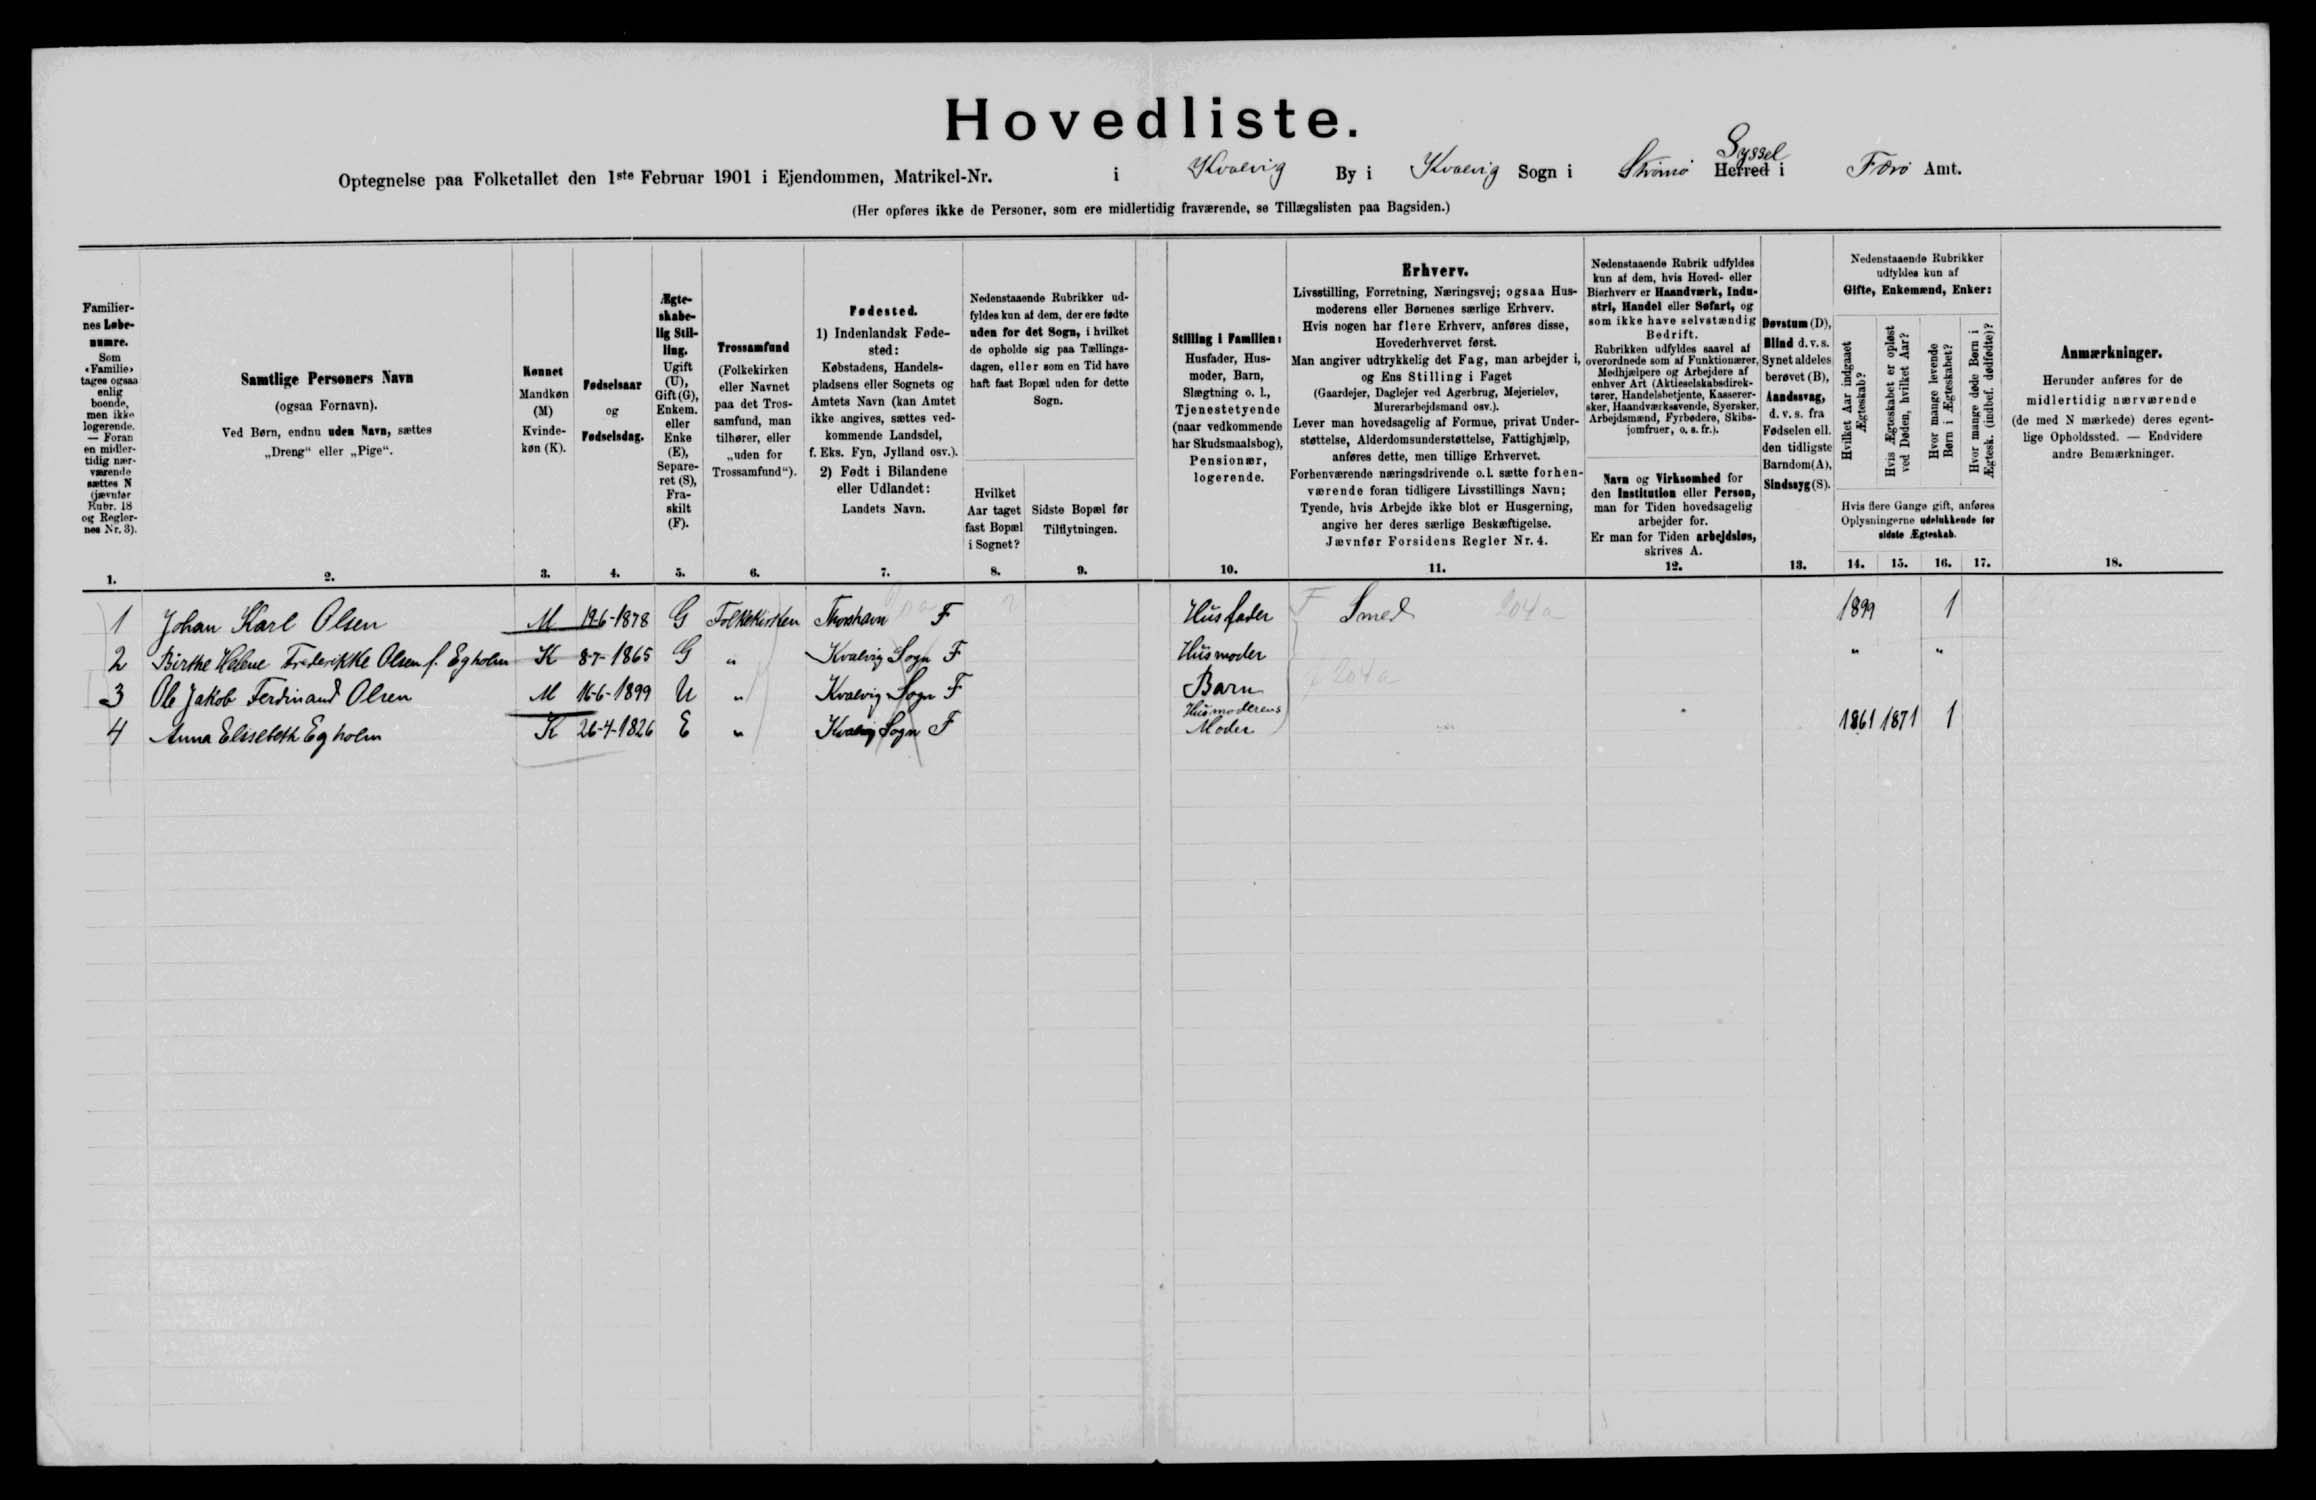 Hovedliste.
Optegnelse paa Folketallet den 1ste Februar 1901 i Ejendommen, Matrikel-Nr. i Kvalvig By i Kvalvig Sogn i Strømø Herred Syssel i Færø Amt.
(Her opføres ikke de Personer, som ere midlertidig fraværende, se Tillægslisten paa Bagsiden.)
Familier-
nes Løbe-
numre.
Som
«Familie»
tages ogsaa
enlig
boende,
men ikke
logerende.
— Foran
en midler-
tidig nær-
værende
sættes N
(jævnfør
Rubr. 18
og Regler-
nes Nr. 3).
Samtlige Personers Navn
(ogsaa Fornavn).
Ved Børn, endnu uden Navn, sættes
„Dreng" eller „Pige".
Kønnet
Mandkøn
(M)
Kvinde-
køn (K).
Fødselsaar
og
Fødselsdag.
Ægte-
skabe-
lig Stil-
ling.
Ugift
(U),
Gift (G),
Enkem.
eller
Enke
(E),
Separe-
ret (S),
Fra-
skilt
(F).
Trossamfund
(Folkekirken
eller Navnet
paa det Tros-
samfund, man
tilhører, eller
„uden for
Trossamfund").
Fødested.
1) Indenlandsk Føde-
sted:
Købstadens, Handels-
pladsens eller Sognets og
Amtets Navn (kan Amtet
ikke angives, sættes ved-
kommende Landsdel,
f. Eks. Fyn, Jylland osv.).
2) Født i Bilandene
eller Udlandet:
Landets Navn.
Nedenstaaende Rubrikker ud-
fyldes kun af dem, der ere fødte
uden for det Sogn, i hvilket
de opholde sig paa Tællings-
dagen, eller som en Tid have
haft fast Bopæl uden for dette
Sogn.
Hvilket
Aar taget
fast Bopæl
i Sognet?
Sidste Bopæl før
Tilflytningen.
Stilling i Familien:
Husfader, Hus-
moder, Barn,
Slægtning o. l.,
Tjenestetyende
(naar vedkommende
har Skudsmaalsbog),
Pensionær,
logerende.
Erhverv.
Livsstilling, Forretning, Næringsvej; ogsaa Hus-
moderens eller Børnenes særlige Erhverv.
Hvis nogen har flere Erhverv, anføres disse,
Hovederhvervet først.
Man angiver udtrykkelig det Fag, man arbejder i,
og Ens Stilling i Faget
(Gaardejer, Daglejer ved Agerbrug, Mejerielev,
Murerarbejdsmand osv.).
Lever man hovedsagelig af Formue, privat Under-
støttelse, Alderdomsunderstøttelse, Fattighjælp,
anføres dette, men tillige Erhvervet.
Forhenværende næringsdrivende o.l. sætte forhen-
værende foran tidligere Livsstillings Navn;
Tyende, hvis Arbejde ikke blot er Husgerning,
angive her deres særlige Beskæftigelse.
Jævnfør Forsidens Regler Nr. 4.
Nedenstaaende Rubrik udfyldes
kun af dem, hvis Hoved- eller
Bierhverv er Haandværk, Indu-
stri, Handel eller Søfart, og
som ikke have selvstændig
Bedrift.
Rubrikken udfyldes saavel af
overordnede som af Funktionærer,
Medhjælpere og Arbejdere af
enhver Art (Aktieselskabsdirek-
tører, Handelsbetjente, Kasserer-
sker, Haandværkssvende, Syersker,
Arbejdsmænd, Fyrbødere, Skibs-
jomfruer, o. s. fr.).
Navn og Virksomhed for
den Institution eller Person,
man for Tiden hovedsagelig
arbejder for.
Er man for Tiden arbejdsløs,
skrives A.
Døvstum (D),
Blind d. v. s.
Synet aldeles
berøvet (B),
Aandssvag,
d. v. s. fra
Fødselen ell.
den tidligste
Barndom (A),
Sindssyg (S).
Nedenstaaende Rubrikker
udfyldes kun af
Gifte, Enkemænd, Enker:
Hvilket Aar indgaaet
Ægteskab?
Hvis Ægteskabet er opløst
ved Døden, hvilket Aar?
Hvor mange levende
Børn i Ægteskabet?
Hvor mange døde Børn i
Ægtesk. (indbef. dødfødte)?
Hvis flere Gange gift, anføres
Oplysningerne udelukkende for
sidste Ægteskab.
Anmærkninger.
Herunder anføres for de
midlertidig nærværende
(de med N mærkede) deres egent-
lige Opholdssted. — Endvidere
andre Bemærkninger.
1. 2. 3. 4. 5. 6. 7. 8. 9. 10. 11. 12. 13. 14. 15. 16. 17. 18.
1 Johan Karl Olsen M 19-6-1878 G Folkekirken Thorshavn F Husfader F Smed 204a 1899 1
2 Birthe Helene Frederikke Olsen f. Egholm K 8-7-1865 G " Kvalvig Sogn F Husmoder " "
3 Ole Jakob Ferdinand Olsen M 16-6-1899 U " Kvalvig Sogn F Barn f 204a
4 Anna Elssebeth Egholm K 26-4-1826 E " Kvalvig Sogn F Husmoderens Moder 1861 1871 1